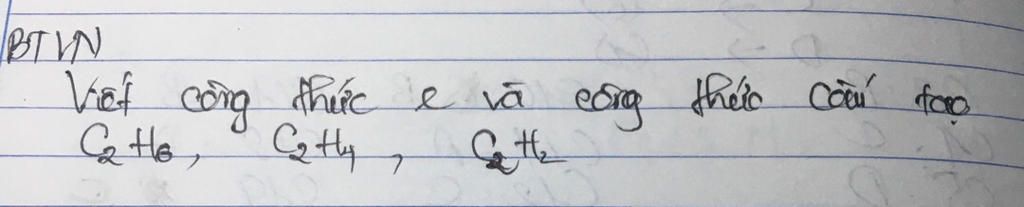 BTVN
Viết công thức e và công thức cấu tạo
C₂H₆, C₂H₄, C₂H₂